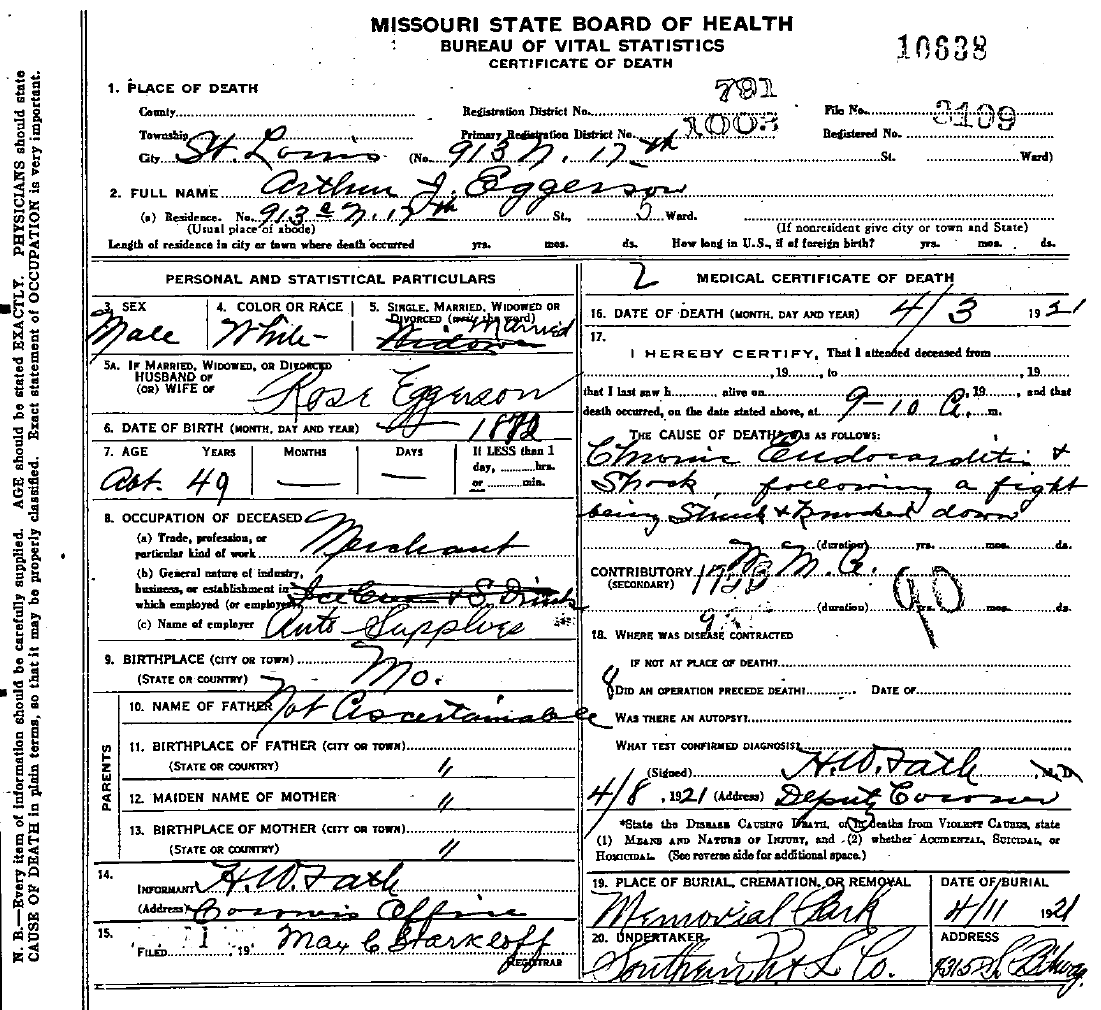 MISSOURI STATE BOARD OF HEALTH
BUREAU OF VITAL STATISTICS
CERTIFICATE OF DEATH
10638
1. PLACE OF DEATH
791
County
Registration District No.
File No.
Township
Primary Registration District No. 1003
Registered No. 3109
City St. Louis (No. 913 N. 17th St. Ward)
2. FULL NAME Arthur J. Eggerson
(a) Residence. No. 913a N. 17th St., 5 Ward.
(Usual place of abode) (If nonresident give city or town and State)
Length of residence in city or town where death occurred yrs. mos. ds. How long in U.S., if of foreign birth? yrs. mos. ds.
PERSONAL AND STATISTICAL PARTICULARS
3. SEX
Male
4. COLOR OR RACE
White
5. SINGLE, MARRIED, WIDOWED OR DIVORCED (write the word)
Married
Widower
5A. IF MARRIED, WIDOWED, OR DIVORCED
HUSBAND OF
(OR) WIFE OF Rose Eggerson
6. DATE OF BIRTH (MONTH, DAY AND YEAR) 1872
7. AGE YEARS MONTHS DAYS If LESS than 1 day, hrs. or min.
Abt. 49 — —
8. OCCUPATION OF DECEASED
(a) Trade, profession, or particular kind of work Merchant
(b) General nature of industry, business, or establishment in which employed (or employer)
(c) Name of employer Auto Supplies
9. BIRTHPLACE (CITY OR TOWN)
(STATE OR COUNTRY) Mo.
PARENTS
10. NAME OF FATHER Not Ascertainable
11. BIRTHPLACE OF FATHER (CITY OR TOWN)
(STATE OR COUNTRY) "
12. MAIDEN NAME OF MOTHER "
13. BIRTHPLACE OF MOTHER (CITY OR TOWN)
(STATE OR COUNTRY) "
14.
INFORMANT H.W. Fath
(Address) Coroners Office
15.
FILED 19 Max C Starkloff
REGISTRAR
2 MEDICAL CERTIFICATE OF DEATH
16. DATE OF DEATH (MONTH, DAY AND YEAR) 4/3 1921
17.
I HEREBY CERTIFY, That I attended deceased from
, 19 , to , 19
that I last saw h alive on , 19 , and that
death occurred, on the date stated above, at 9-10 A. m.
THE CAUSE OF DEATH* WAS AS FOLLOWS:
Chronic Endocarditis &
Shock, following a fight
being Struck & Knocked down
(duration) yrs. mos. ds.
CONTRIBUTORY
(SECONDARY)
90
(duration) yrs. mos. ds.
18. WHERE WAS DISEASE CONTRACTED
IF NOT AT PLACE OF DEATH?
8 DID AN OPERATION PRECEDE DEATH? DATE OF
WAS THERE AN AUTOPSY?
WHAT TEST CONFIRMED DIAGNOSIS?
(Signed) H.W. Fath M.D
4/8, 1921 (Address) Deputy Coroner
*State the DISEASE CAUSING DEATH, or in deaths from VIOLENT CAUSES, state
(1) MEANS AND NATURE OF INJURY, and (2) whether ACCIDENTAL, SUICIDAL, or
HOMICIDAL. (See reverse side for additional space.)
19. PLACE OF BURIAL, CREMATION, OR REMOVAL
Memorial Park
DATE OF BURIAL
4/11 1921
20. UNDERTAKER
Southern U & L Co.
ADDRESS
N. B.—Every item of information should be carefully supplied. AGE should be stated EXACTLY. PHYSICIANS should state
CAUSE OF DEATH in plain terms, so that it may be properly classified. Exact statement of OCCUPATION is very important.